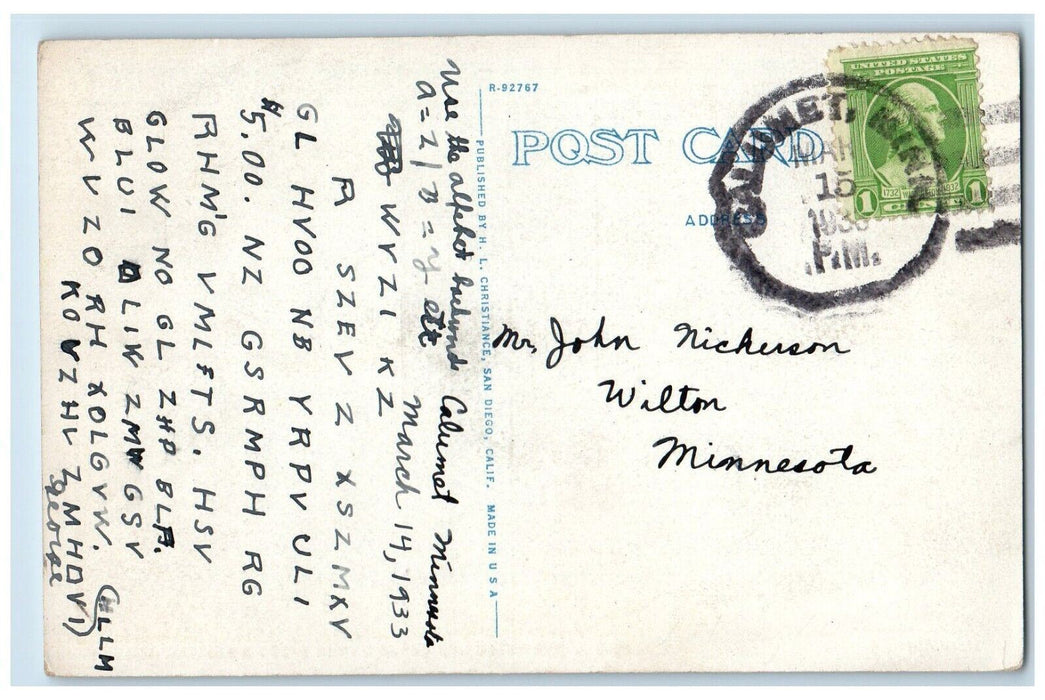 R-92767
POST CARD
ADDRESS
UNITED STATES
POSTAGE
1 1732 WASHINGTON 1932 1
CALUMET, MINN.
MAR
15
1933
P.M.
PUBLISHED BY H. L. CHRISTIANCE, SAN DIEGO, CALIF. MADE IN U S A
Mr. John Nickerson
Wilton
Minnesota
Use the alfabet backwards Calumet Minnesota
a = z / B = y etc March 14, 1933
WVZI KZ
R SZEV Z XSZMXV
GL HVOO NB YRPV ULI
$5.00. NZ GSRMPH RG
RHM'G VMLFTS. HSV
GLOW NO GL ZHP BLF.
BLUI OLIW ZMW GSV
WVZO RH XOLGVW.
KOVZHV ZMHDVI (HLLM)
George